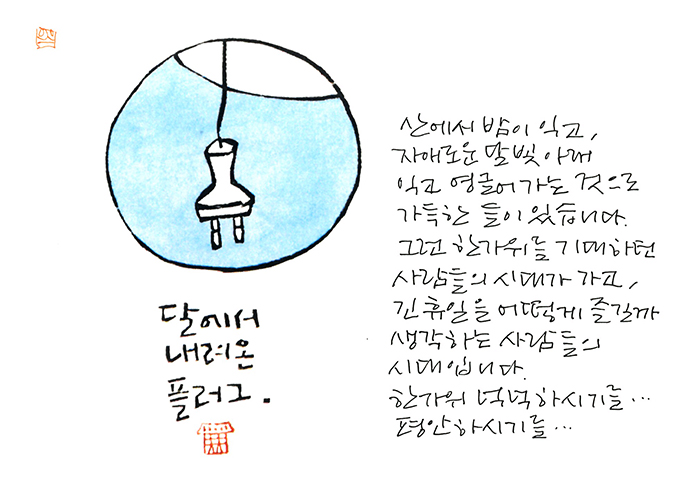 달에서
내려온
플러그.
산에서 밤이 익고,
자애로운 달빛 아래
익고 영글어가는 것으로
가득한 들이 있습니다.
그런 한가위를 기대하던
사람들의 시대가 가고,
긴 휴일을 어떻게 즐길까
생각하는 사람들의
시대입니다.
한가위 넉넉하시기를…
평안하시기를…